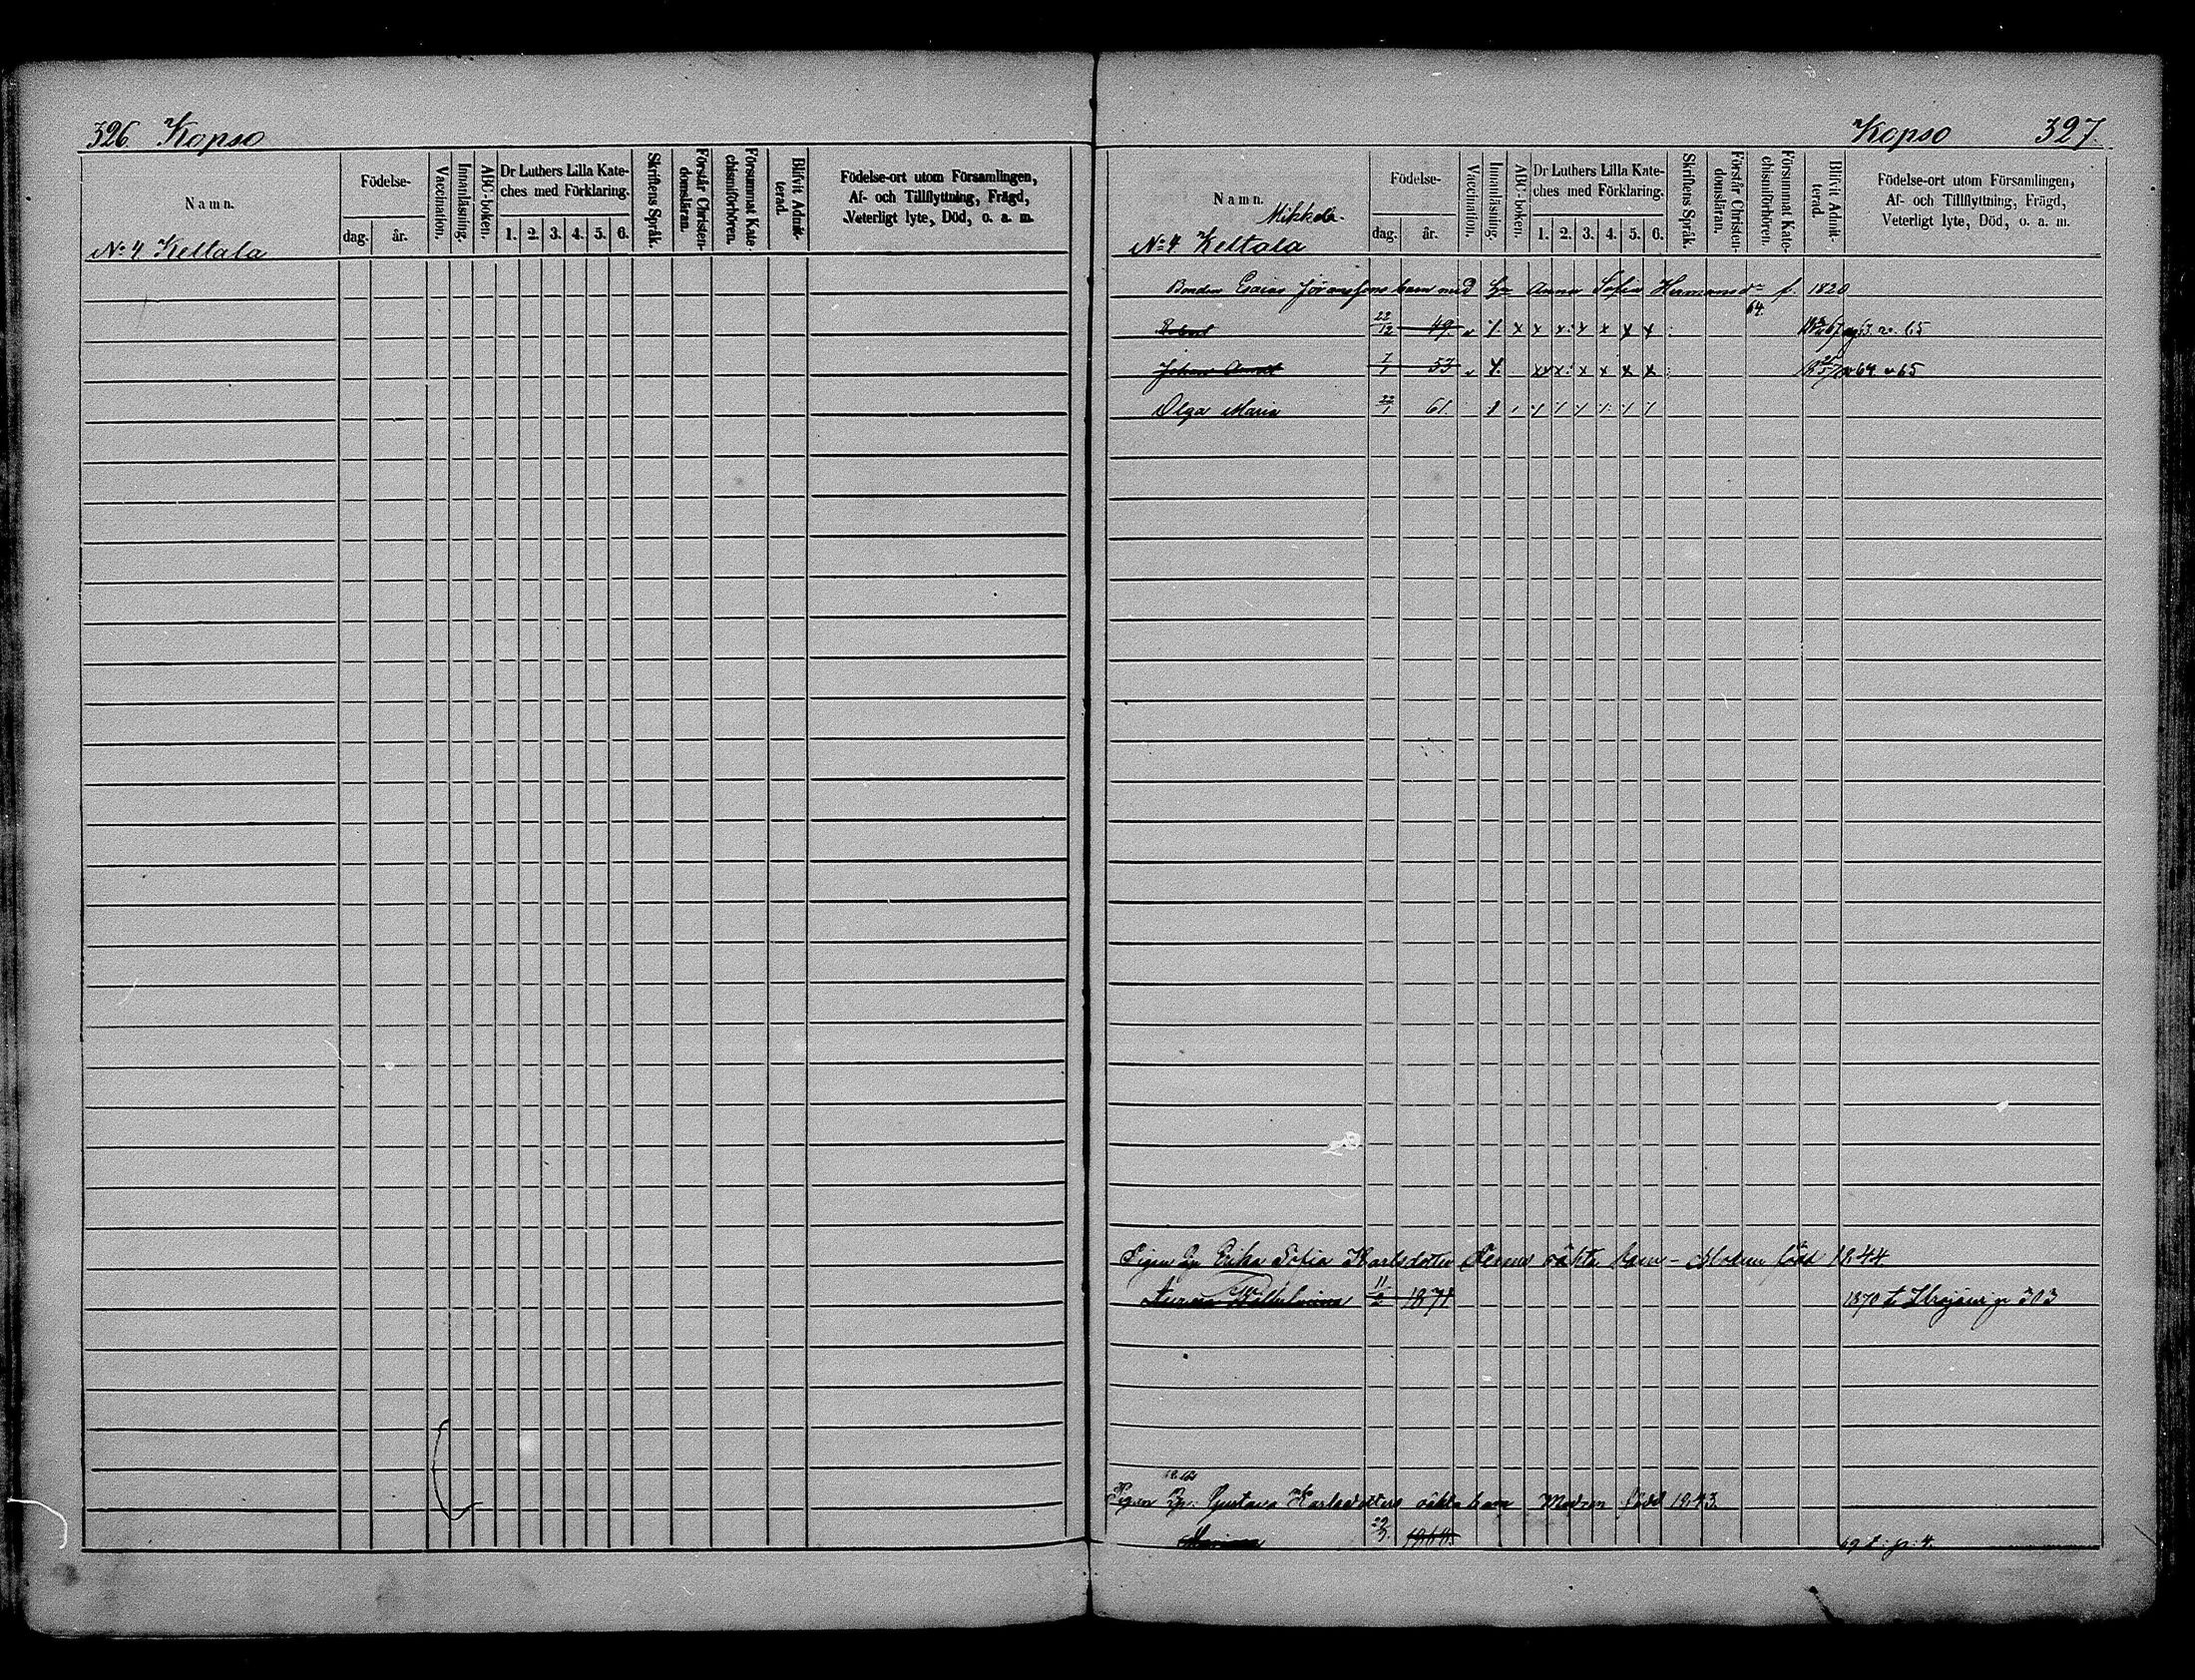 326. Kopso
Namn.
Födelse-
dag.
år.
Vaccination.
Innanläsning.
ABC-boken.
Dr Luthers Lilla Kate-
ches med Förklaring.
1. 2. 3. 4. 5. 6.
Skriftens Språk.
Förstår Christen-
domsläran.
Försummat Kate-
chismiförhören.
Blifvit Admit-
terad.
Födelse-ort utom Församlingen,
Af- och Tillflyttning, Frägd,
Veterligt lyte, Död, o. a. m.
No 4 Keltala
Kopso 327.
Namn.
Mikkola.
Födelse-
dag.
år.
Vaccination.
Innanläsning.
ABC-boken.
Dr Luthers Lilla Kate-
ches med Förklaring.
1. 2. 3. 4. 5. 6.
Skriftens Språk.
Förstår Christen-
domsläran.
Försummat Kate-
chismiförhören.
Blifvit Admit-
terad.
Födelse-ort utom Församlingen,
Af- och Tillflyttning, Frägd,
Veterligt lyte, Död, o. a. m.
No 4 Keltala
Bonden Esaias Göranssons barn med Anna Sofia Hermansdr f. 1820
64.
22/12 49. x x x x x x x 65
Johan 7/1 53 x x x x x x 64 65
Olga Maria 22/1 61.
Pigan Erika Sofia Karlsdotter oäkta barn - Modern född 1844
Wilhelmina 11/2 1871 1870 p 303
Pigan Gustava Karlsdotters oäkta barn Modren född 1843.
p. 4.